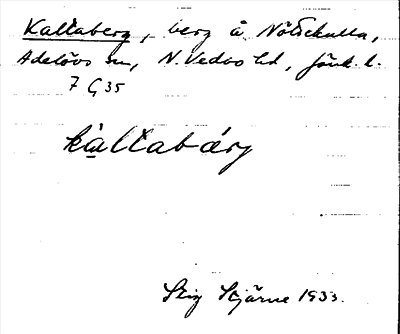 Kallaberg, berg å Nötsekulla,
Adelövs sn, N. Vedbo hd, Jönk. l.
7 G 35
kàllabárg
Stig Stjärne 1933.